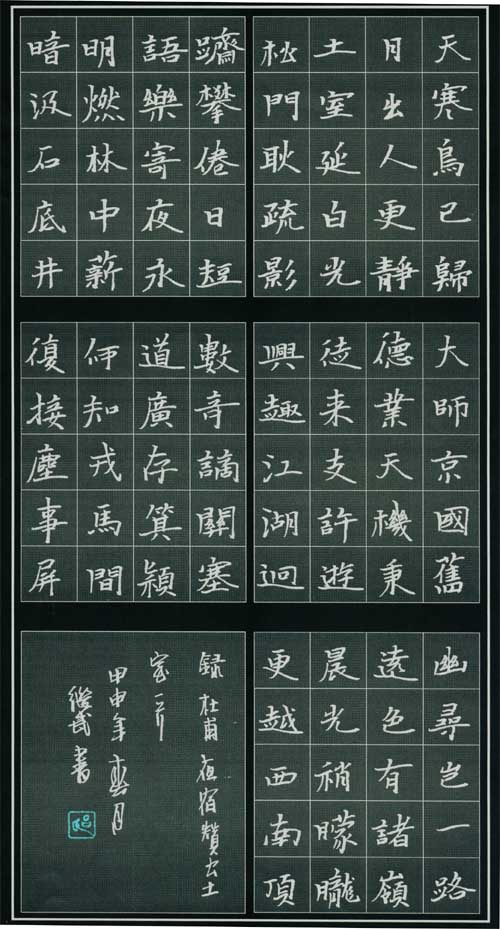 天寒鳥已歸
月出人更靜
土室延白光
松門耿疏影
躋攀倦日短
語樂寄夜永
明燃林中薪
暗汲石底井
大師京國舊
德業天機秉
從来支許遊
興趣江湖迥
數奇謫關塞
道廣存箕穎
何知戎馬間
復接塵事屏
幽尋岂一路
遠色有諸嶺
晨光稍朦朧
更越西南頂
録杜甫夜宿贊公土
室一首
甲申年春月
書